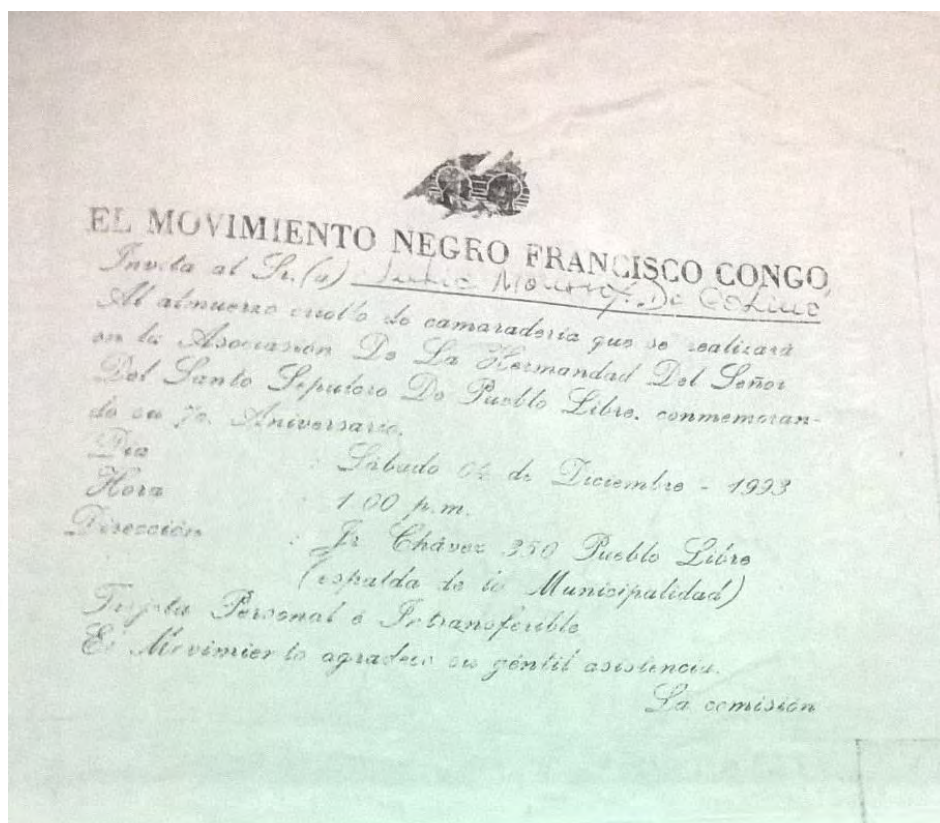 EL MOVIMIENTO NEGRO FRANCISCO CONGO,
Invita al Sr.(a)
Al almuerzo criollo de camaradería que se realizará
en la Asociación De La Hermandad Del Señor
Del Santo Sepulcro De Pueblo Libre, conmemoran-
do su 7o. Aniversario.
Día : Sábado 04 de Diciembre - 1993
Hora 1.00 p.m.
Dirección : Jr. Chávez 350 Pueblo Libre
(espalda de la Municipalidad)
Tarjeta Personal é Intransferible
El Movimiento agradece su géntil asistencia.
La comisión